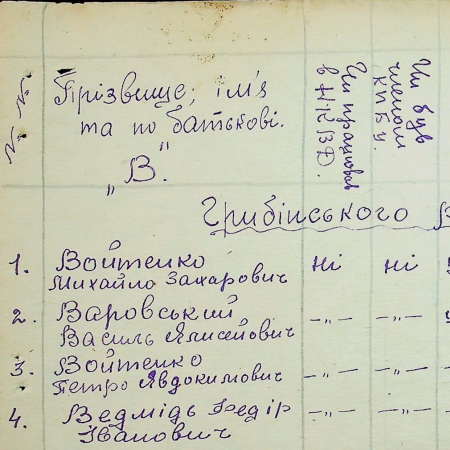 № №
Прізвище, ім'я
та по батькові.
„В."
Чи працював
в НКВД.
Чи був
членом
КПбУ.
Грибінського В
1. Войтенко ні ні
Михайло Захарович
2. Варовський —„— —„—
Василь Ялисейович
3. Войтенко —„— —„—
Петро Явдокимович
4. Ведмідь Федір —„— —„—
Іванович